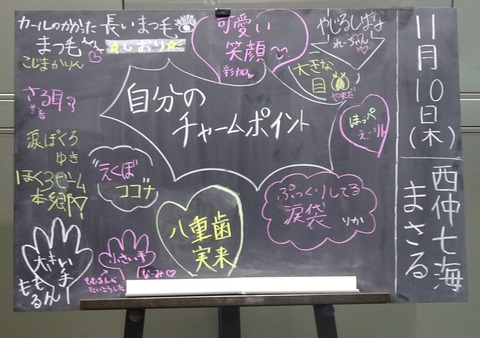 11月10日(木)
西仲七海
まさる
自分の
チャームポイント
カールのかかった
まつ毛
こじまかりん
長いまつ毛
☆しおり☆
可愛い
笑顔
彩加
やじるしばな
れーちゃん
大きな
目
やまだ
ほっぺ
さる耳?
涙ぼくろ
ゆき
ほくろビーム
本郷?
"えくぼ"
ココナ
八重歯
実来
ぷっくりしてる
涙袋
りか
大きい手
ももるん
小さい手
なーみ♡
ももるんに
たいこうした